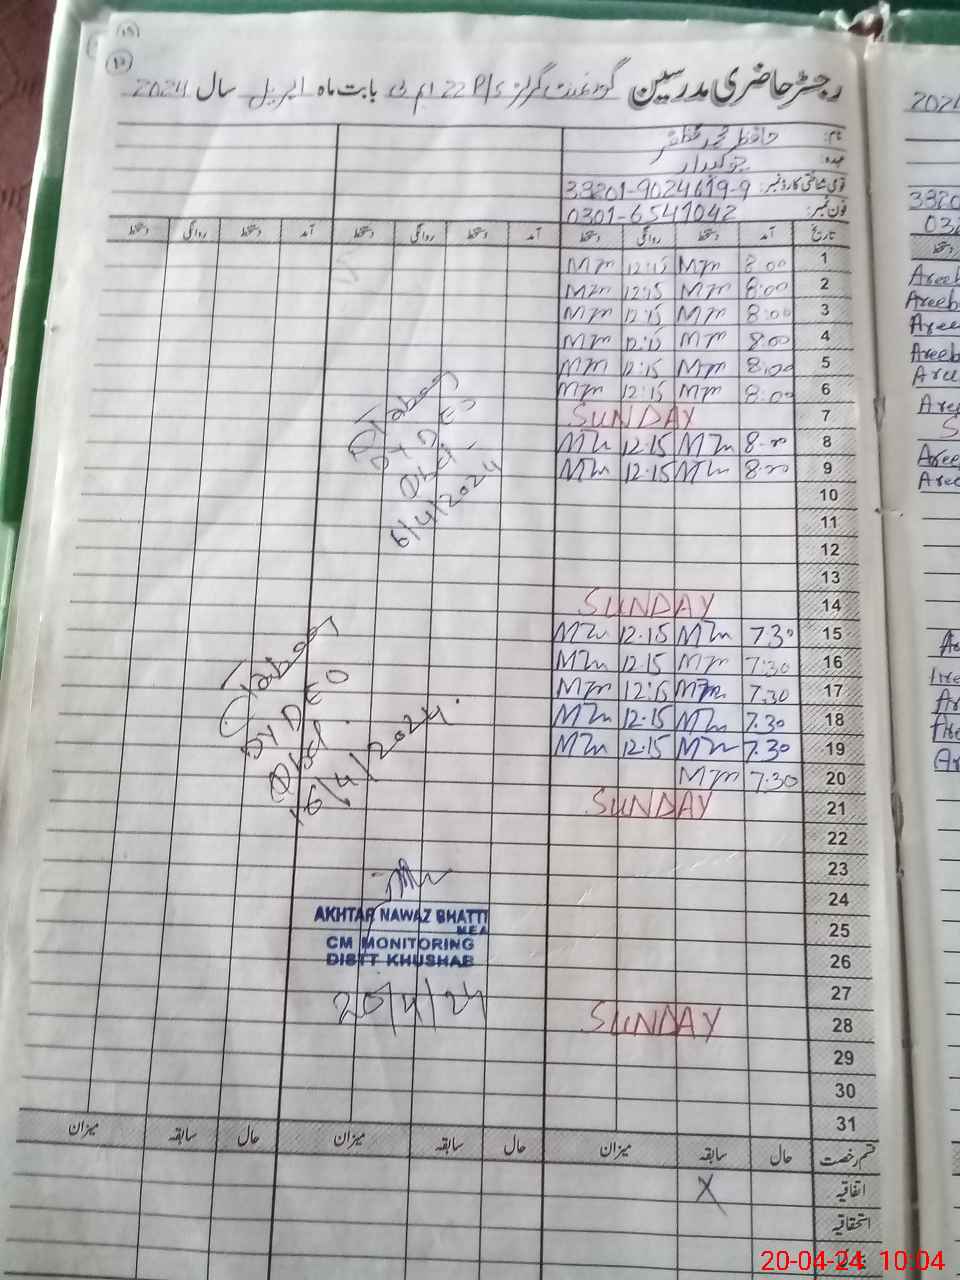 10
رجسٹر حاضری مدرسین گورنمنٹ گرلز P/S 22 ایم بی بابت ماہ اپریل سال 2024
نام: حافظ محمد مظفر
عہدہ: چوکیدار
قومی شناختی کارڈ نمبر: 38201-9024619-9
فون نمبر: 0301-6541042
تاریخ آمد دستخط روانگی دستخط آمد دستخط روانگی دستخط آمد دستخط روانگی دستخط
1 8:00 Mm 12:15 Mm
2 8:00 Mm 12:15 Mm
3 8:00 Mm 12:15 Mm
4 8:00 Mm 12:15 Mm
5 8:00 Mm 12:15 Mm
6 8:00 Mm 12:15 Mm
7 SUNDAY
8 8:00 Mm 12.15 Mm
9 8:00 Mm 12.15 Mm
10
11
12
13
14 SUNDAY
15 7.30 Mm 12.15 Mm
16 7:30 Mm 12.15 Mm
17 7.30 Mm 12:15 Mm
18 7.30 Mm 12.15 Mm
19 7.30 Mm 12.15 Mm
20 7:30 Mm
21 SUNDAY
22
23
24
25
26
27
28 SUNDAY
29
30
31
DY DEO
Qbd
6/4/2024
DY DEO
Qbd
16/4/2024
AKHTAR NAWAZ BHATTI
MEA
CM MONITORING
DISTT KHUSHAB
20/4/24
قسم رخصت حال سابقہ میزان حال سابقہ میزان حال سابقہ میزان
اتفاقیہ X
استحقاقیہ
2024
3820
03
دستخط
Areeb
Areeb
Aree
Areeb
Aree
Are
S
Aree
Aree
20-04-24 10:04